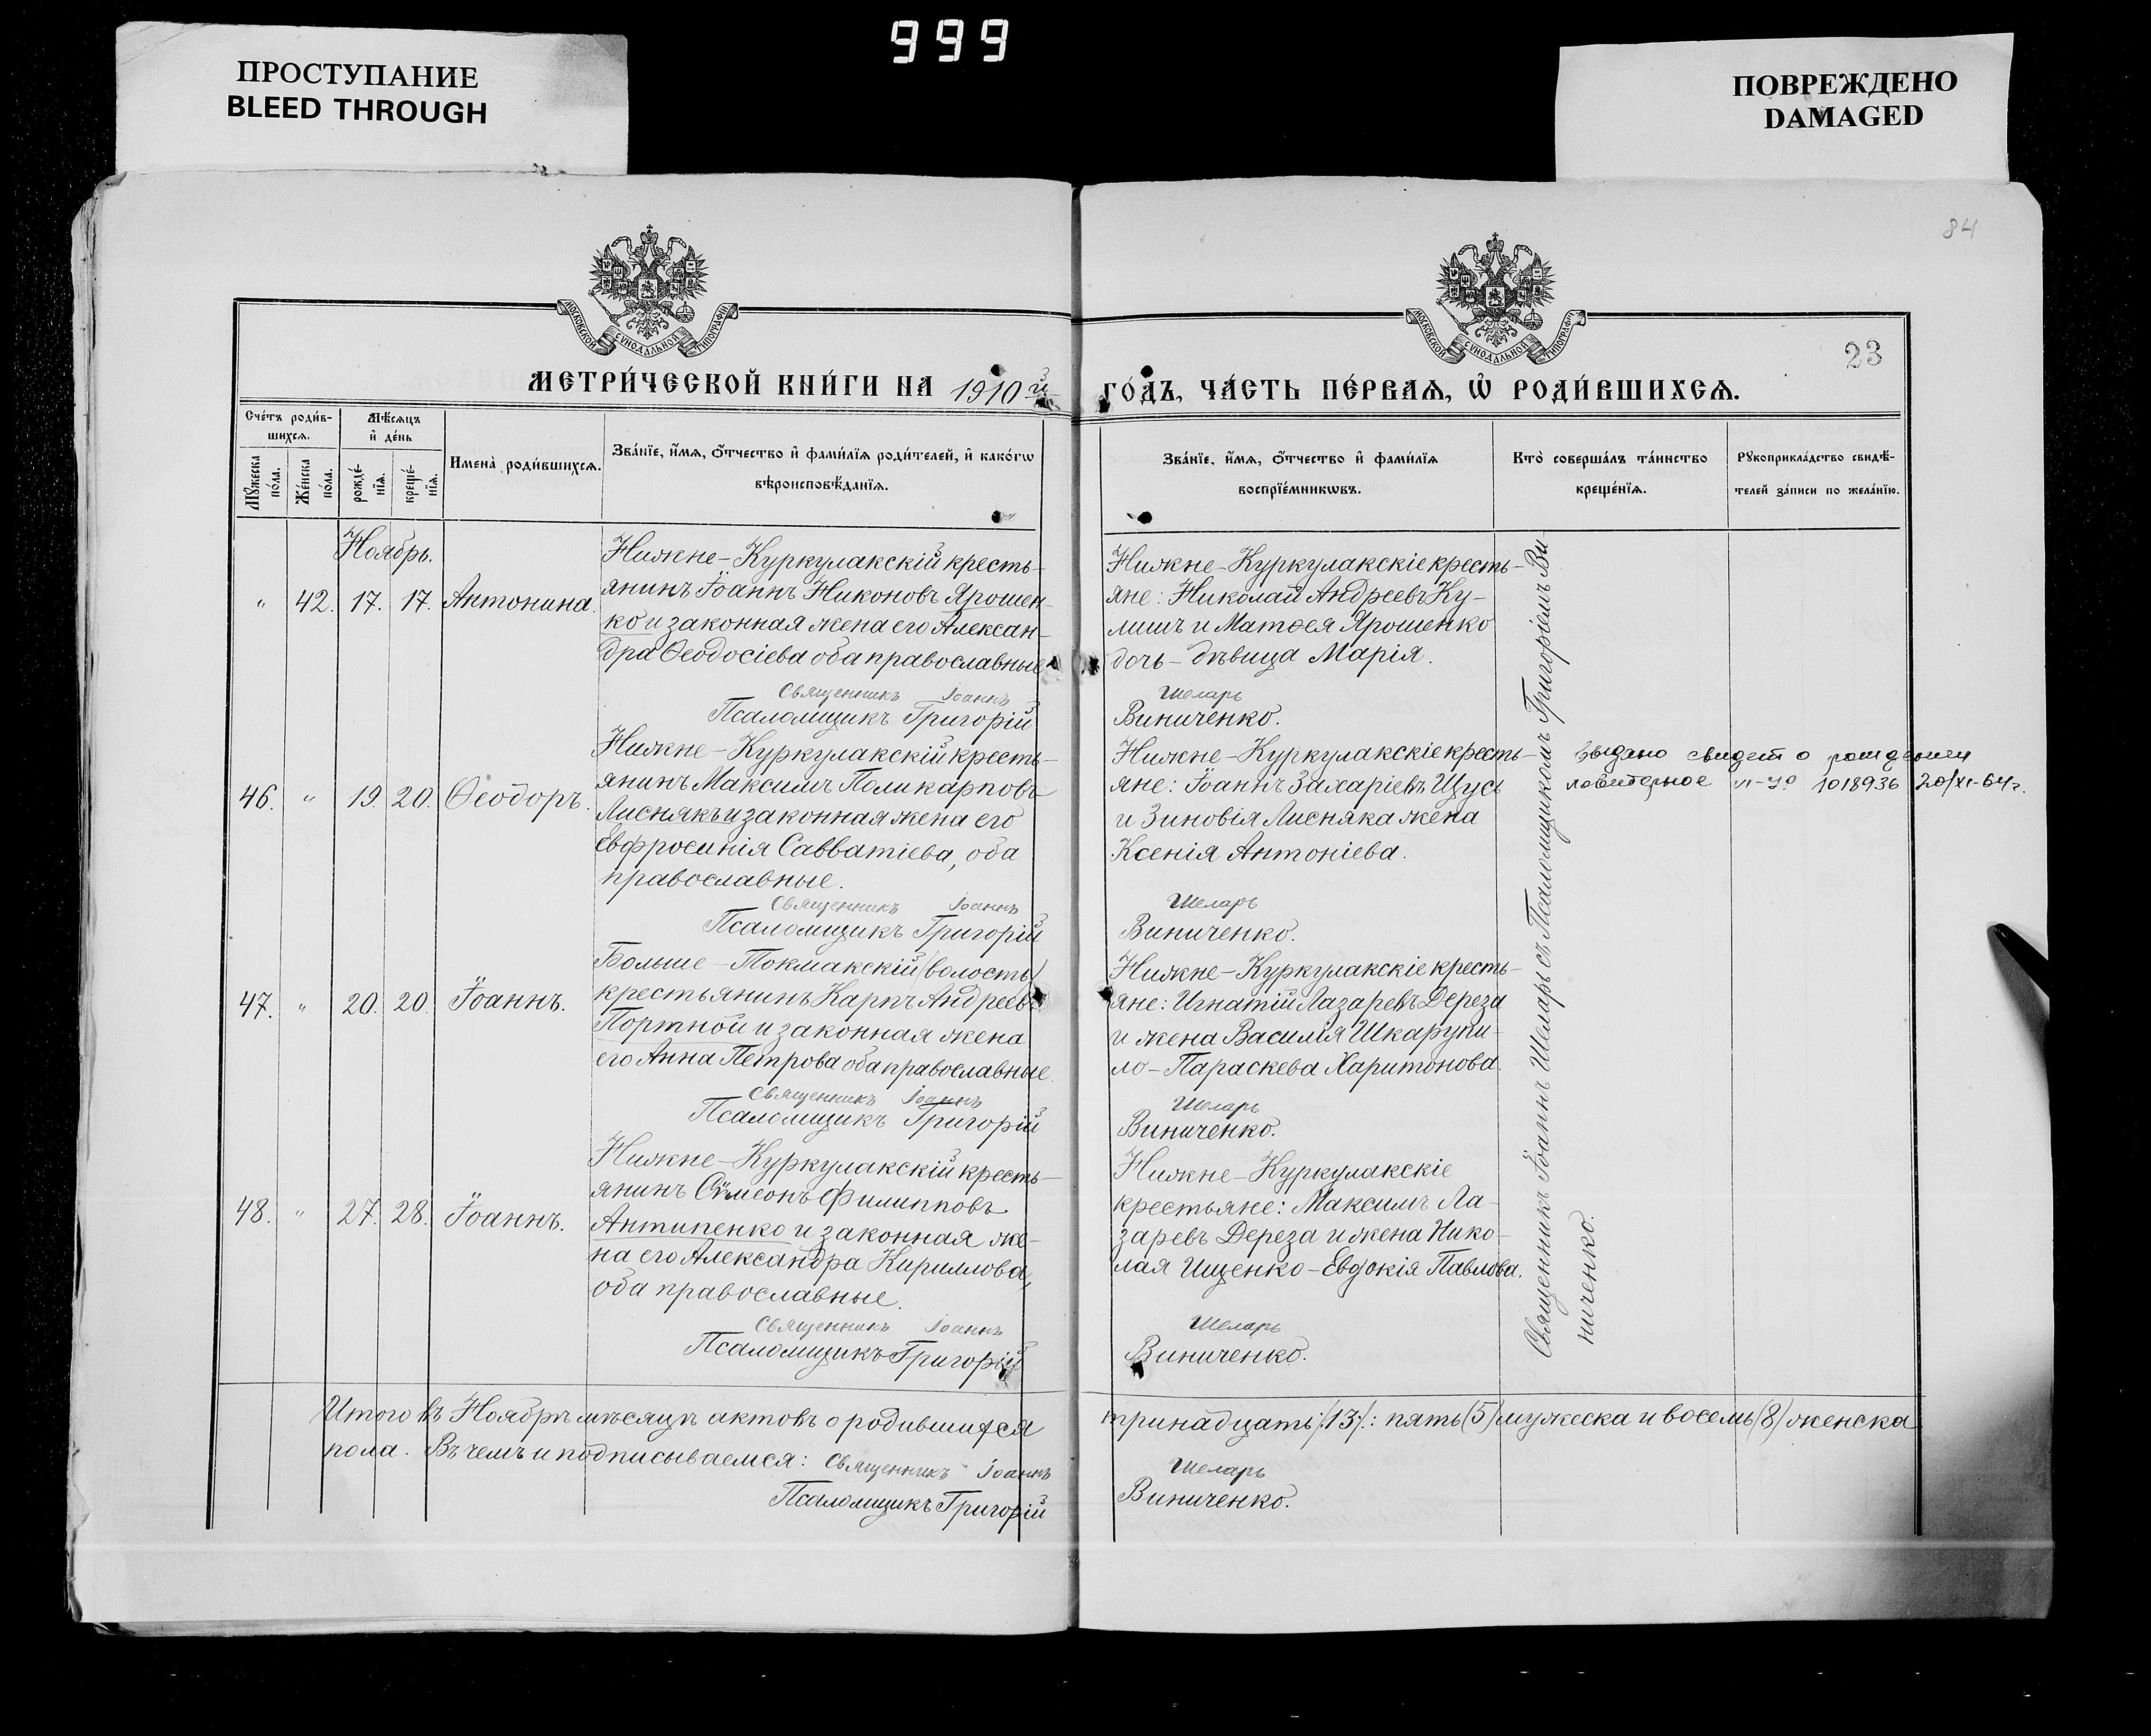 999
ПРОСТУПАНИЕ
BLEED THROUGH
ПОВРЕЖДЕНО
DAMAGED
84
МОСКОВСКОЙ СѴНОДАЛЬНОЙ ТИПОГРАФІИ
МОСКОВСКОЙ СѴНОДАЛЬНОЙ ТИПОГРАФІИ
23
МЕТРИ́ЧЕСКОЙ КНИ́ГИ НА 1910й
ГО́ДЪ, ЧА́СТЬ ПЕ́РВАѦ, Ѡ҆ РОДИ́ВШИХСѦ.
Сче́тъ роди́в-
шихсѧ.
Мѣ́сѧцъ
и҆ де́нь
Мꙋ́жеска
по́ла.
Же́нска
по́ла.
рожде́-
нїѧ.
креще́-
нїѧ.
Имена̀ роди́вшихсѧ.
Зва́нїе, и҆́мѧ, ѻ҆́тчество и҆ фами́лїѧ роди́телей, и҆ како́гѡ
вѣроисповѣ́данїѧ.
Зва́нїе, и҆́мѧ, ѻ҆́тчество и҆ фами́лїѧ
воспрїе́мникѡвъ.
Кто̀ соверша́лъ та́инство
креще́нїѧ.
Рꙋкоприкла́дство свидѣ́-
телей за́писи по жела́нїю.
Ноябрь.
" 42. 17. 17. Антонина.
Нижне-Куркулакскій кресть-
янинъ Іоаннъ Никоновъ Ярошен-
ко и законная жена его Алексан-
дра Ѳеодосіева оба православные
Священникъ Іоаннъ
Псаломщикъ Григорій
Нижне-Куркулакскіе кресть-
яне: Николай Андреевъ Ку-
лишъ и Матѳея Ярошенко
дочь - дѣвица Марія.
Шеларь
Виниченко.
46. " 19. 20. Ѳеодоръ.
Нижне-Куркулакскій кресть-
янинъ Максимъ Поликарповъ
Лиснякъ и законная жена его
Евфросинія Савватіева, оба
православные.
Священникъ Іоаннъ
Псаломщикъ Григорій
Нижне-Куркулакскіе кресть-
яне: Іоаннъ Захаріевъ Щусь
и Зиновія Лисняка жена
Ксенія Антоніева.
Шеларь
Виниченко.
Выдано свидет о рождении
повиторное 1018936 20/XI-64г.
47. " 20. 20. Іоаннъ.
Больше-Токмакскій (волость)
крестьянинъ Карпъ Андреевъ
Портной и законная жена
его Анна Петрова оба православные.
Священникъ Іоаннъ
Псаломщикъ Григорій
Нижне-Куркулакскіе кресть-
яне: Игнатій Лазаревъ Дереза
и жена Василія Шкарупи-
ло - Параскева Харитонова.
Шеларь
Виниченко.
48. " 27. 28. Іоаннъ.
Нижне-Куркулакскій кресть-
янинъ Сѵмеонъ Филипповъ
Антипенко и законная же-
на его Александра Кириллова,
оба православные.
Священникъ Іоаннъ
Псаломщикъ Григорій
Нижне-Куркулакскіе
крестьяне: Максимъ Ла-
заревъ Дереза и жена Нико-
лая Ищенко - Евдокія Павлова.
Шеларь
Виниченко.
Священникъ Іоаннъ Шеларь съ Псаломщикомъ Григоріемъ Ви
ниченко.
Итого въ Ноябрѣ мѣсяцѣ актовъ о родившихся тринадцать /13/: пять (5) мужеска и восемь (8) женска
пола. Въ чемъ и подписываемся: Священникъ Іоаннъ Шеларь
Псаломщикъ Григорій Виниченко.